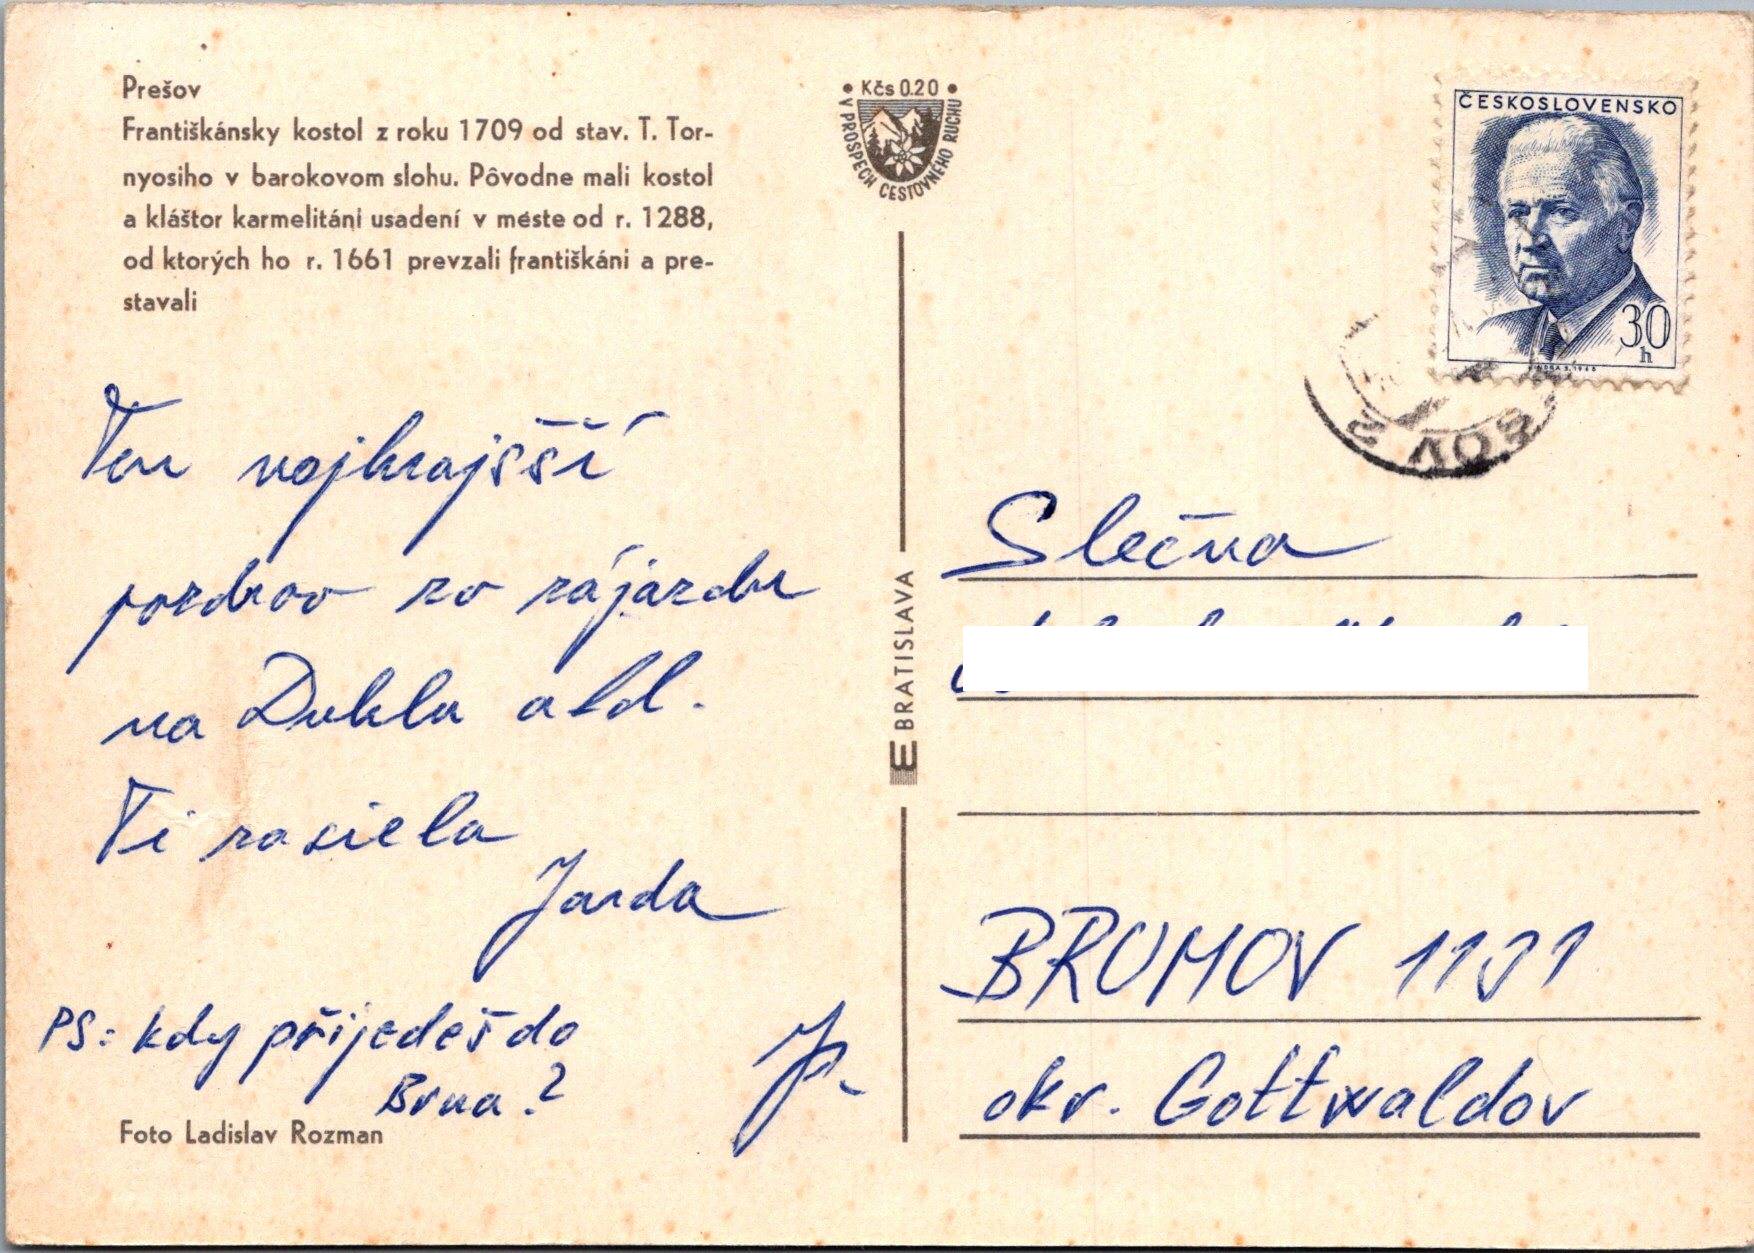 Prešov
Františkánsky kostol z roku 1709 od stav. T. Tor-
nyosiho v barokovom slohu. Pôvodne mali kostol
a kláštor karmelitáni usadení v meste od r. 1288,
od ktorých ho r. 1661 prevzali františkáni a pre-
stavali
Ten najkrajšší
pozdrav zo zájazdu
na Duklu atd.
Ti zasiela
Jarda
PS: kdy přijedeš do
Brna?
Foto Ladislav Rozman
• Kčs 0.20 •
V PROSPECH CESTOVNÉHO RUCHU
E BRATISLAVA
ČESKOSLOVENSKO
30
h
ŠOV 2
Slečna
BRUMOV 1191
okr. Gottwaldov